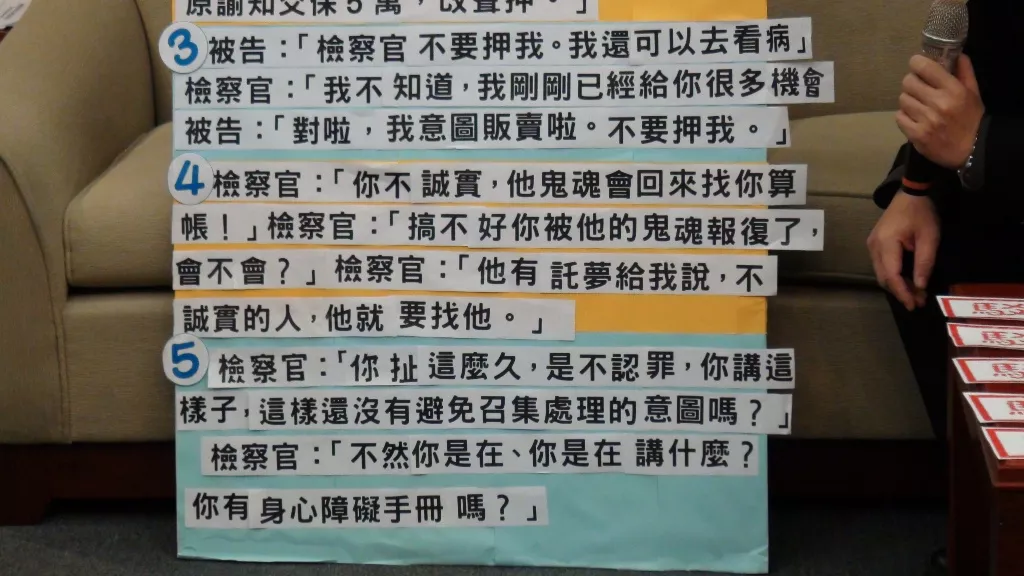 原諭知交保5萬，改聲押。」
3 被告：「檢察官 不要押我。我還可以去看病」
檢察官：「我不 知道，我剛剛已經給你很多機會
被告：「對啦，我意圖販賣啦。不要押我。」
4 檢察官：「你不 誠實，他鬼魂會回來找你算
帳！」檢察官：「搞不 好你被他的鬼魂報復了，
會不會？」檢察官：「他有 託夢給我說，不
誠實的人，他就 要找他。」
5 檢察官：「你 扯 這麼久，是不認罪，你講這
樣子，這樣還沒有避免召集處理的意圖嗎？」
檢察官：「不然你是在、你是在 講什麼？
你有 身心障礙手冊 嗎？」